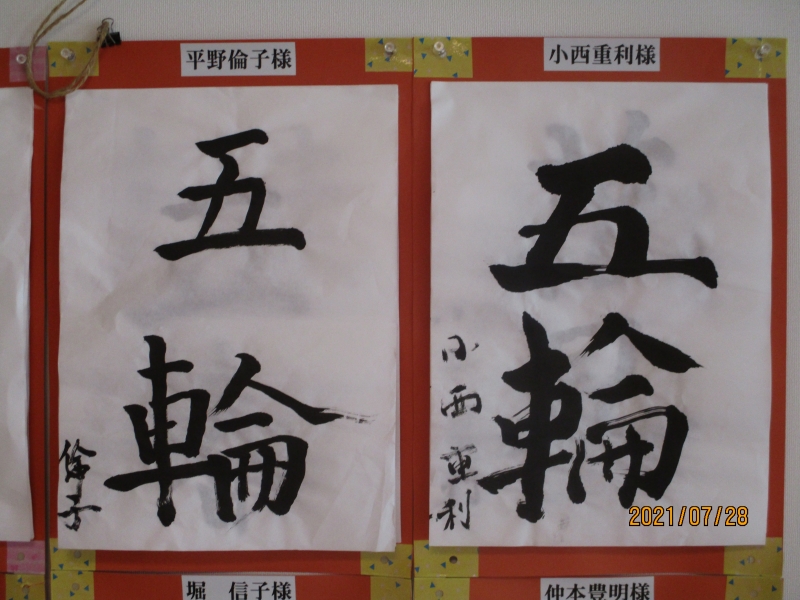 平野倫子様
五
輪
倫子
小西重利様
五
輪
小西重利
2021/07/28
堀 信子様
仲本豊明様